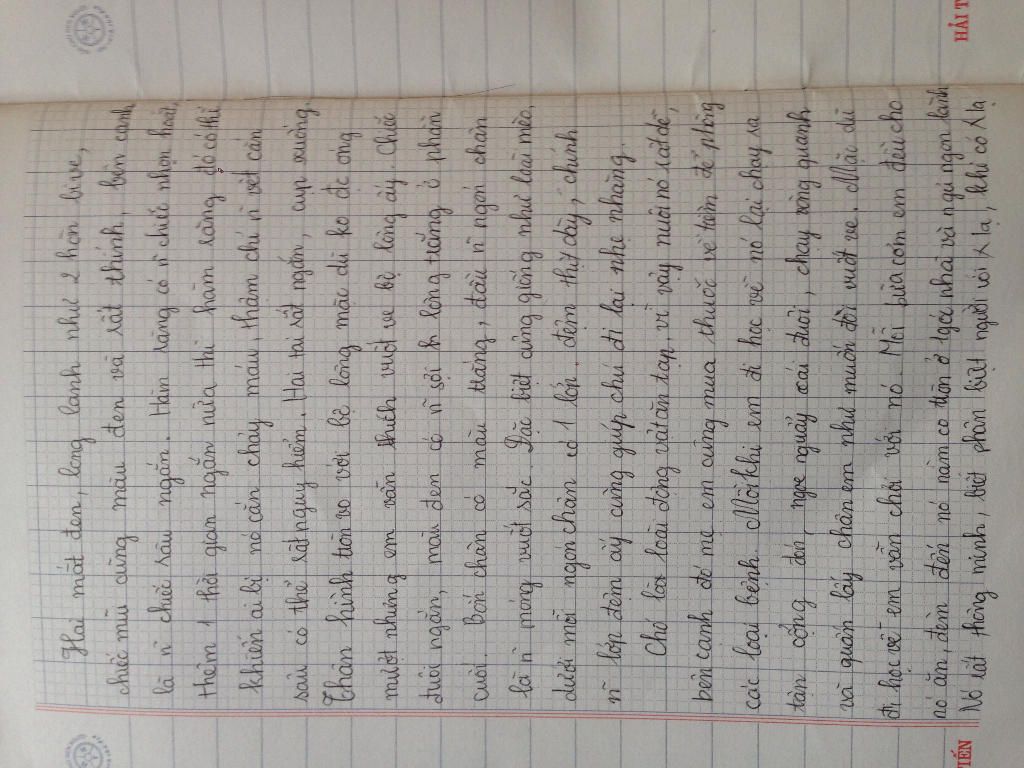 Hai mắt đen, long lanh như 2 hòn bi ve,
chiếc mũi cũng màu đen và rất thính, bên cạnh
là n̄ chiếc râu ngắn. Hàm răng có n̄ chiếc nhọn hoắt,
thêm 1 thời gian ngắn nữa thì hàm răng đó có thể
khiến ai bị nó cắn chảy máu, thậm chí n̄ vết cắn
sâu có thể rất nguy hiểm. Hai tai rất ngắn, cụp xuống.
Thân hình tròn vo với bộ lông mặc dù ko đc óng
mượt nhưng em vẫn thích vuốt ve bộ lông ấy. Chiếc
đuôi ngắn, màu đen có n̄ sợi lông trắng ở phần
cuối. bốn chân có màu trắng, đầu n̄ ngón chân
là n̄ móng vuốt sắc. Đặc biệt cũng giống như loài mèo,
dưới mỗi ngón chân có 1 lớp đệm thịt dày, chính
n̄ lớp đệm ấy cũng giúp chú đi lại nhẹ nhàng.
Chó là loài động vật ăn tạp, vì vậy nuôi nó rất dễ,
bên cạnh đó mẹ em cũng mua thuốc về tiêm để phòng
các loại bệnh. Mỗi khi em đi học về nó lại chạy ra
tận cổng đón, ngoe nguẩy cái đuôi, chạy vòng quanh
và quấn lấy chân em như muốn đòi vuốt ve. Mặc dù
đi học về em vẫn chơi với nó. Mỗi bữa cơm em đều cho
nó ăn, đêm đến nó nằm co tròn ở góc nhà và ngủ ngon lành
Nó rất thông minh, biết phân biệt người với λ lạ, khi có λ lạ
HẢI T
TIẾN